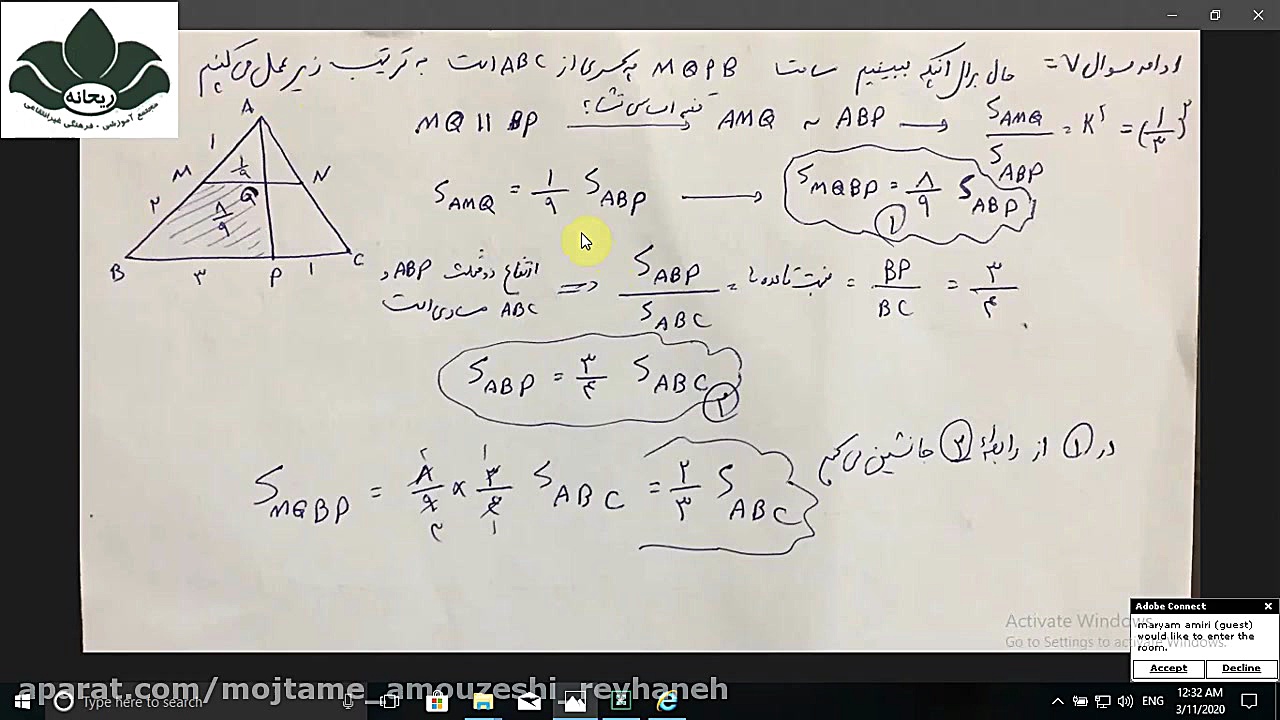 ریحانه
مجتمع آموزشی - فرهنگی غیرانتفاعی
ادامه سوال ۷ = حال برای آنکه ببینیم مساحت MQPB چه کسری از ABC است به ترتیب زیر عمل می‌کنیم
MQ || BP قضیه اساسی تشابه → AMQ ~ ABP → S_AMQ / S_ABP = K² = (۱/۳)²
S_AMQ = ۱/۹ S_ABP → S_MQBP = ۸/۹ S_ABP ①
ارتفاع دو مثلث ABP و
ABC مساوی است
⇒ S_ABP / S_ABC = نسبت قاعده‌ها = BP / BC = ۳/۴
S_ABP = ۳/۴ S_ABC ②
در ① از رابطه ② جانشین می‌کنیم
S_MQBP = ۸/۹ × ۳/۴ S_ABC = ۲/۳ S_ABC
۲ ۱
۳ ۱
A
۱
۱/۹
M
N
Q
۲
۸/۹
B
۳
P
۱
C
Activate Windows
Go to Settings to activate Windows.
Adobe Connect
maryam amiri (guest)
would like to enter the
room.
Accept
Decline
aparat.com/mojtame_amouzeshi_reyhaneh
Type here to search
ENG
12:32 AM
3/11/2020